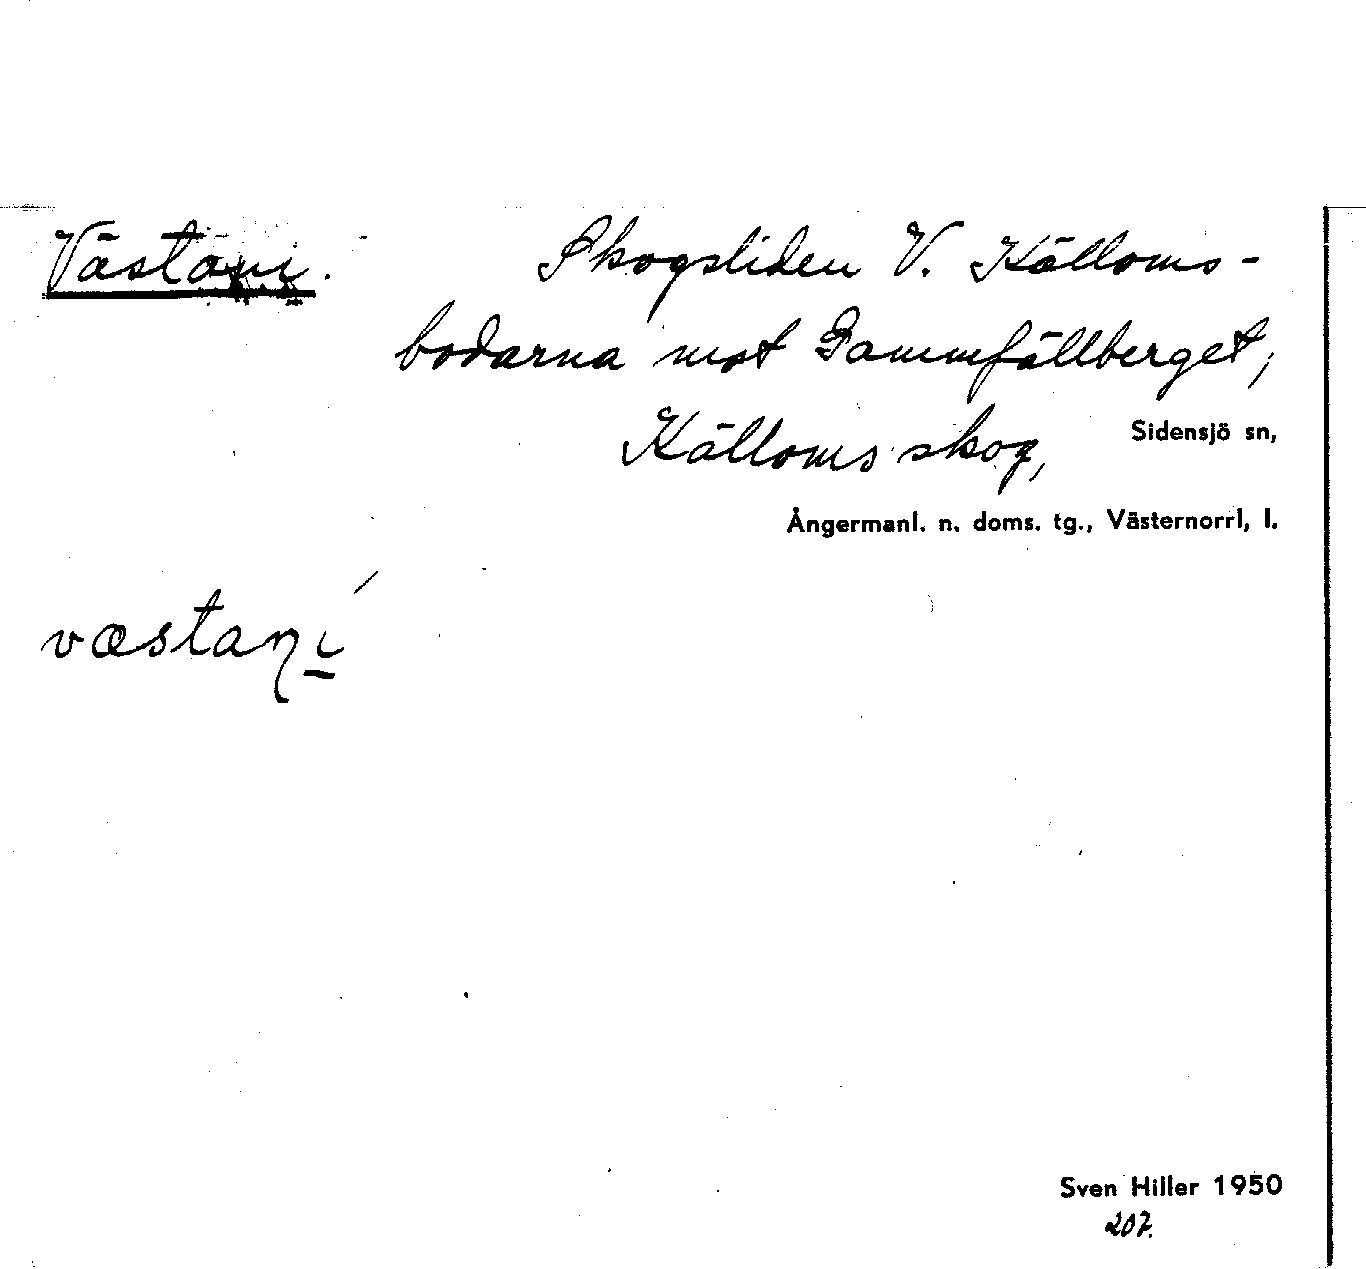 Västani. Skogsliden V. Källoms-
bodarna mot Gammfällberget,
Källoms skog, Sidensjö sn,
Ångermanl. n. doms. tg., Västernorrl, l.
væstaɳi
Sven Hiller 1950
207.